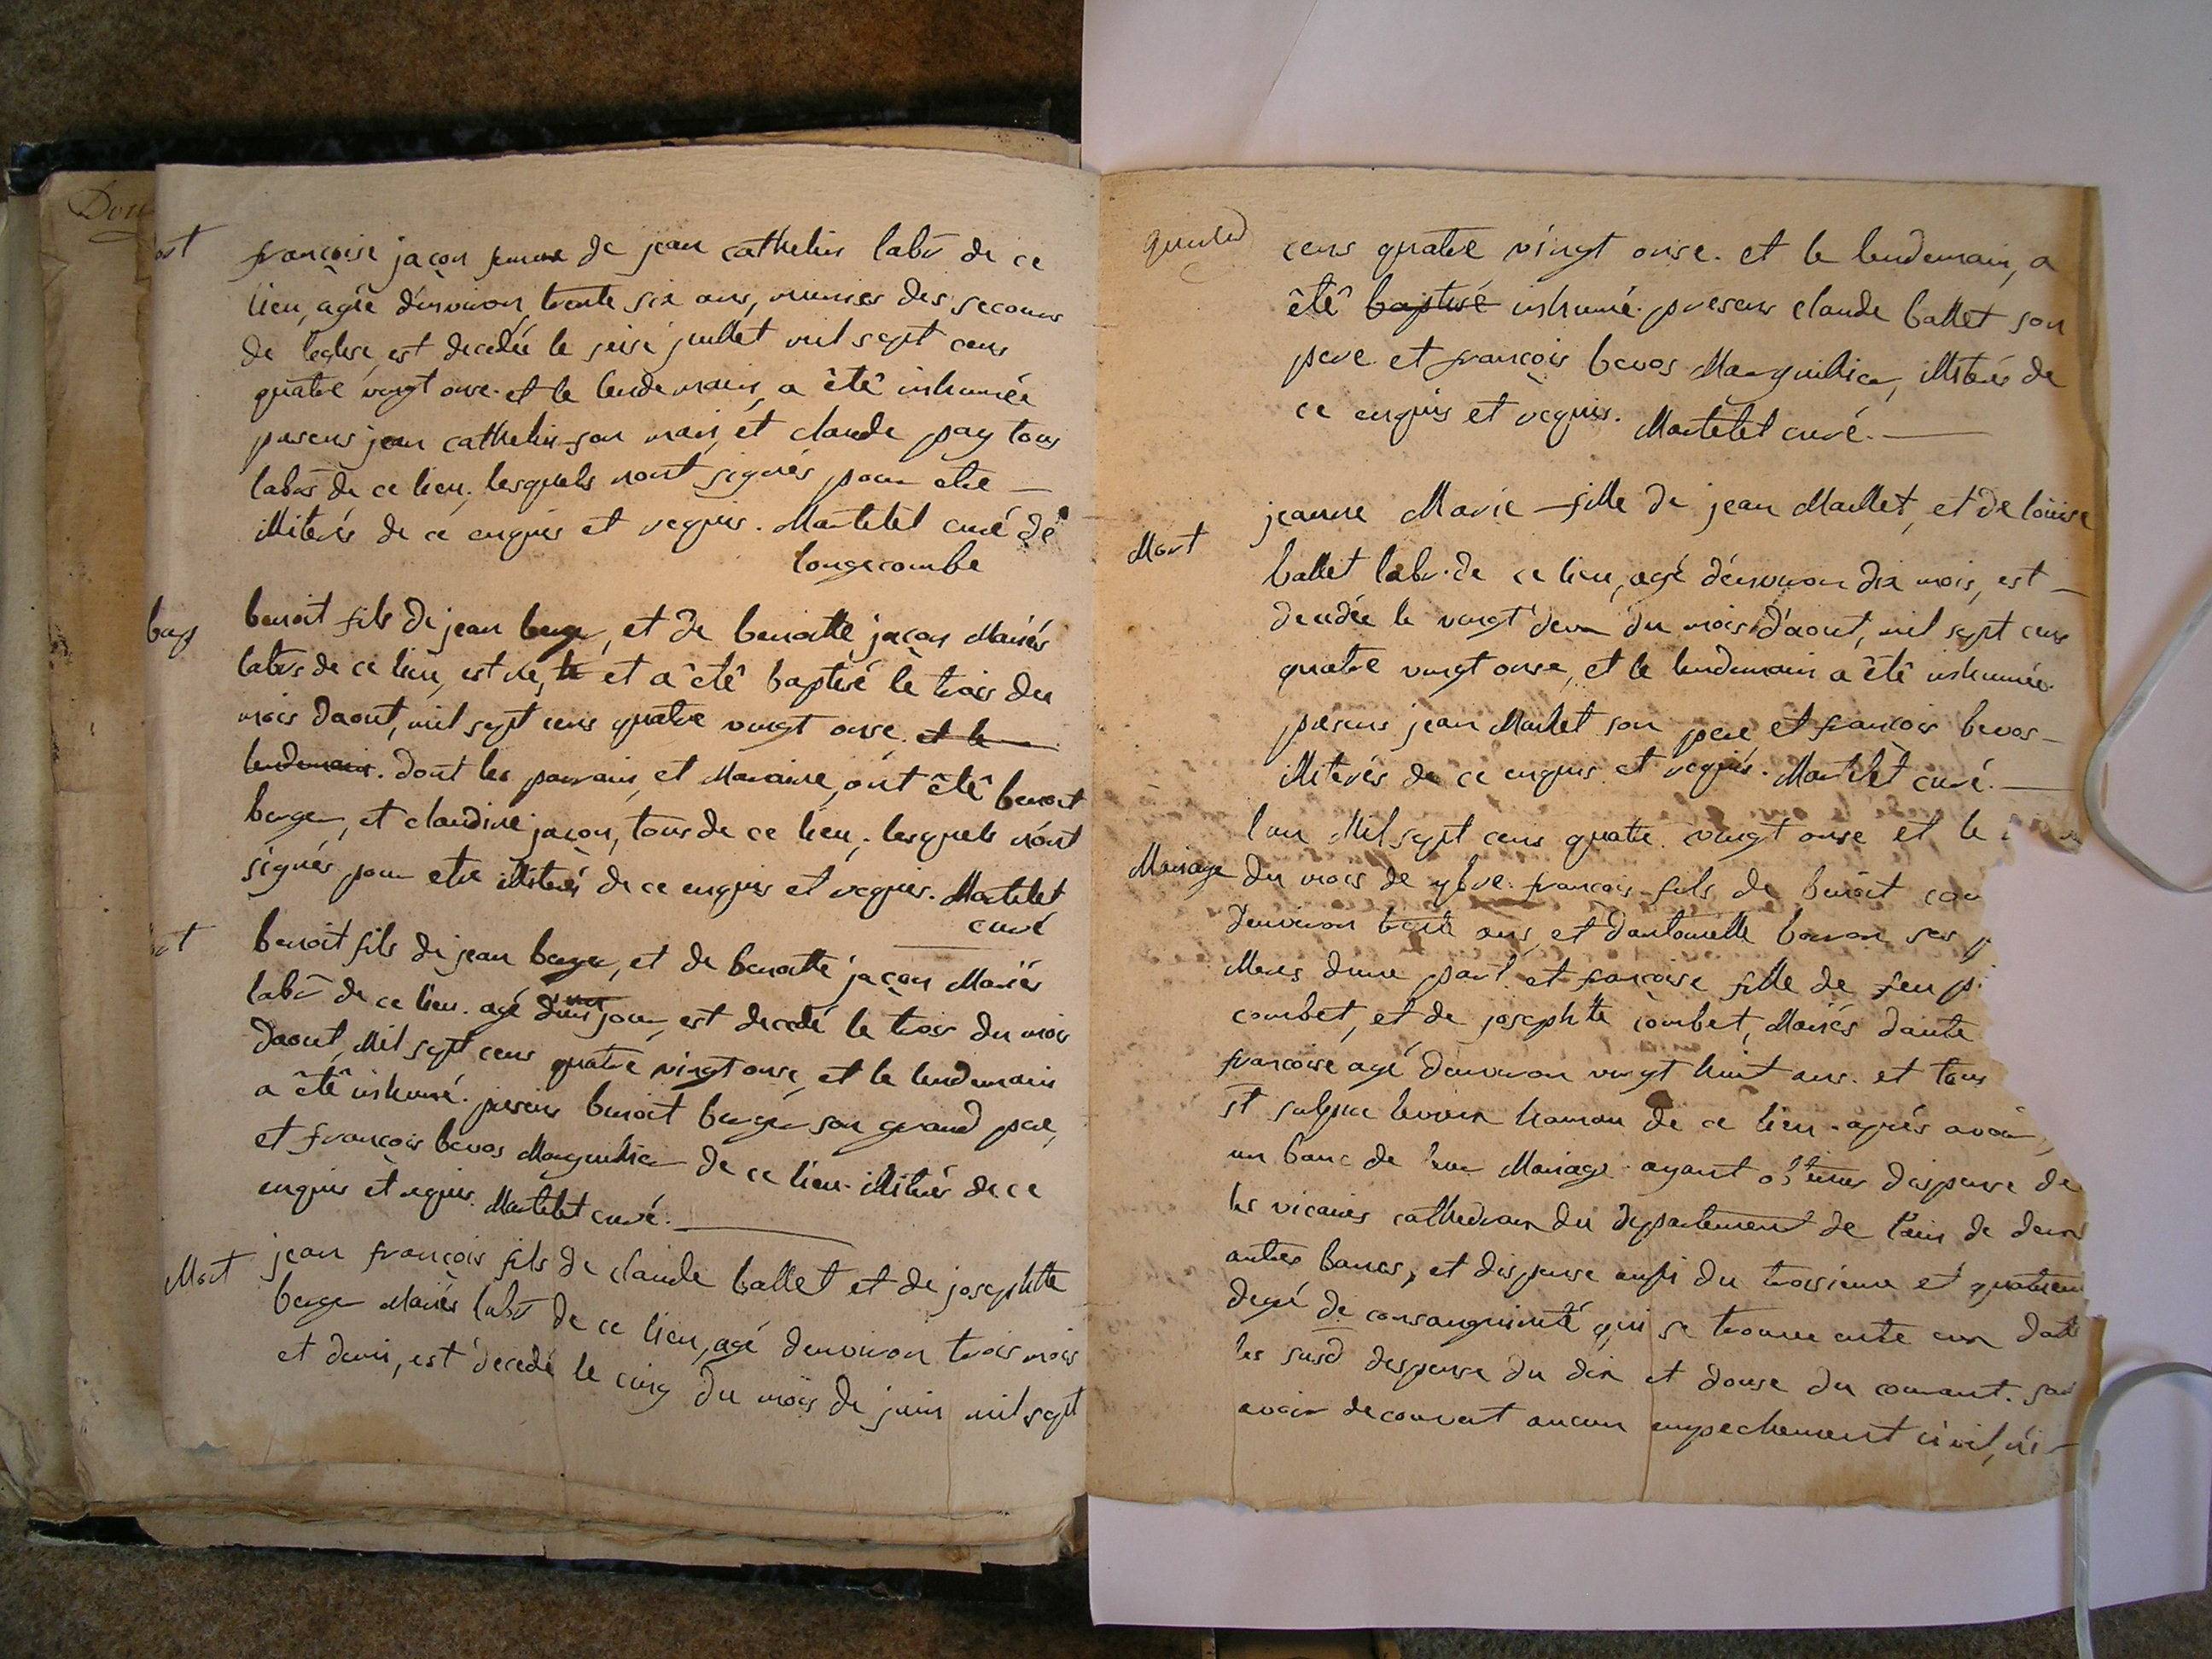 Don
ort
françoise jaçon femme de jean cathelin labr de ce
lieu, agée d'environ trente six ans, munies des secours
de l'eglise, est decedée le seise juillet mil sept cens
quatre vingt onse. et le lendemain, a êtê inhumée
presens jean cathelin son mari, et claude pay tous
labrs de ce lieu, lesquels n'ont signés pour etre
illiterés de ce enquis et requis. Martelet curé de
longecombe
bap
benoit fils de jean berger, et de benoitte jaçon Mariés
labrs de ce lieu, est né, le et a êtê baptisé le trois du
mois d'aout, mil sept cens quatre vingt onse. et le
lendemain. dont les parrain, et Maraine, ont êtê benoit
berger, et claudine jaçon, tous de ce lieu, lesquels n'ont
signés pour etre illiterés de ce enquis et requis. Martelet
curé
ort
benoit fils de jean berger, et de benoitte jaçon Mariés
labr de ce lieu. agé d'un jour, est decedé le trois du mois
d'aout, Mil sept cens quatre vingt onse, et le lendemain
a êtê inhumé. presens benoit berger son grand pere,
et françois bevos Marguillier de ce lieu. illiterés de ce
enquis et requis. Martelet curé.
Mort
jean françois fils de claude ballet et de josephtte
berger Mariés labr de ce lieu, agé d'environ trois mois
et demi, est decedé le cinq du mois de juin mil sept
cens quatre vingt onse. et le lendemain, a
êtê baptisé inhumé. presens claude ballet son
pere et françois bevos Marguillier, illiterés de
ce enquis et requis. Martelet curé.
Mort
jeanne Marie fille de jean Maillet, et de loüise
ballet labr. de ce lieu, agé d'environ dix mois, est
decedée le vingt deux du mois d'aout, mil sept cens
quatre vingt onse, et le lendemain a êtê inhumée.
presens jean Maillet son pere et françois bevos
illiterés de ce enquis et requis. Martelet curé.
l'an Mil sept cens quatre vingt onse et le
Mariage
du mois de 9bre. françois fils de benoit
d'environ trente ans, et d'antoinette ses
Meres d'une part. et françoise fille de feu
combet, et de josephtte combet, Mariés d'autre
françoise agé d'environ vingt huit ans. et tous
st sulpice hameau de ce lieu. aprés avoir
un banc de leur Mariage. ayant obtenus dispense de
les vicaires cathedraux du departement de l'ain de deux
autres bancs, et dispense aussi du troisieme et quatrieme
degré de consanguinité qui se trouve entre eux
les susd dispense du dix et douse du courant. sans
avoir decouvert aucun empechement civil, ni